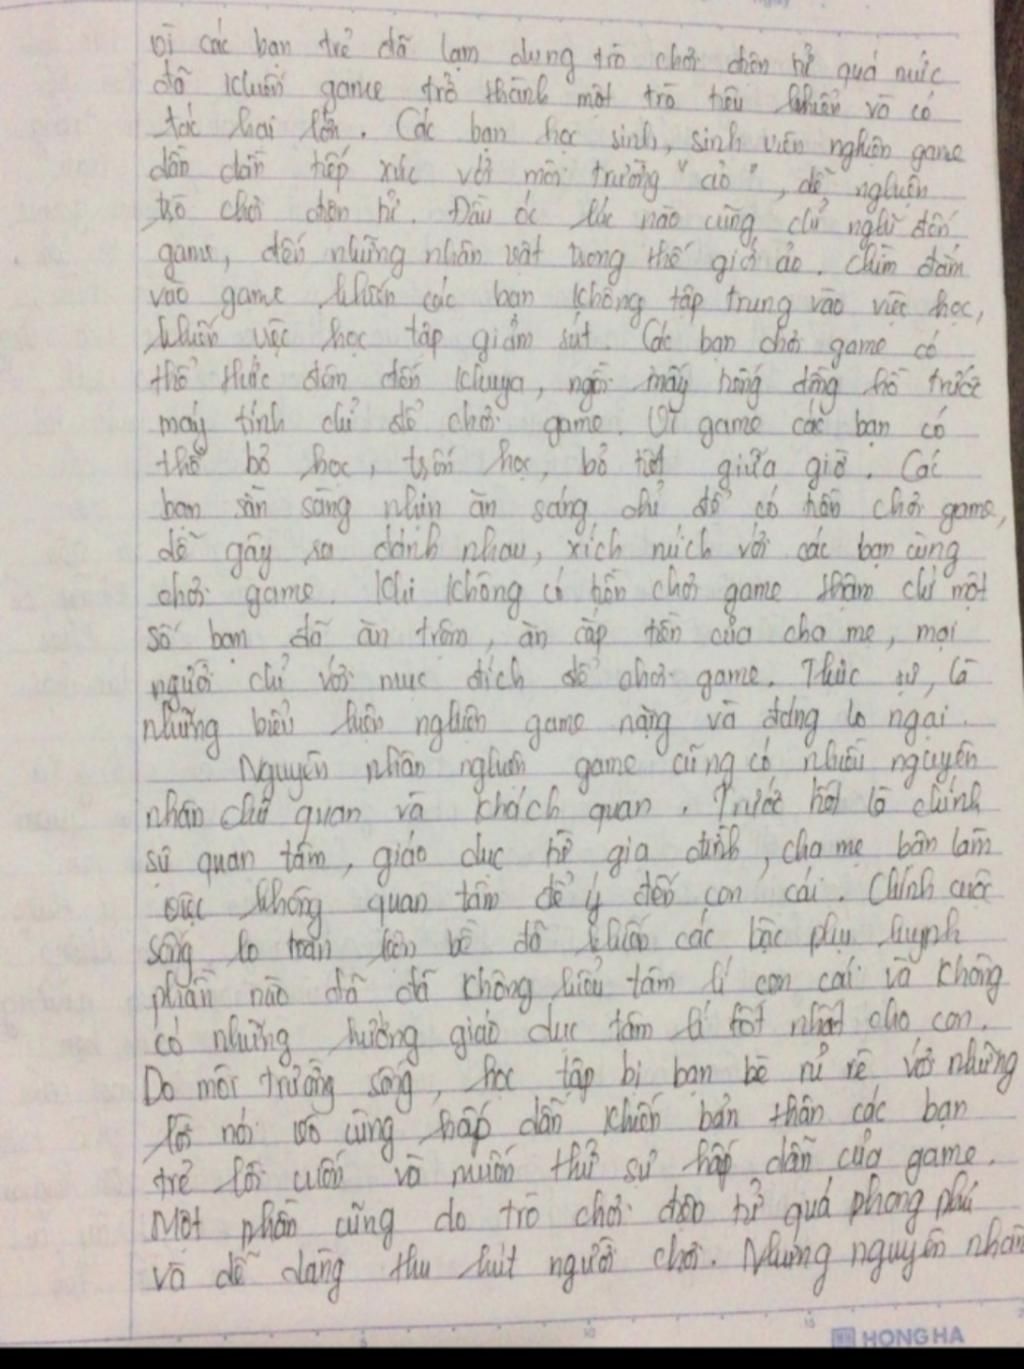 vì các bạn trẻ đã lạm dụng trò chơi điện tử quá mức
đã khiến game trở thành một trò tiêu khiển vô có
tác hại lớn. Các bạn học sinh, sinh viên nghiện game
dần dần tiếp xúc với môi trường "ảo", dễ nghiện
trò chơi điện tử. Đầu óc lúc nào cũng chỉ nghĩ đến
game, đến những nhân vật trong thế giới ảo. Chìm đắm
vào game khiến các bạn không tập trung vào việc học,
khiến việc học tập giảm sút. Các bạn chơi game có
thể thức đêm đến khuya, ngồi mấy tiếng đồng hồ trước
máy tính chỉ để chơi game. Vì game các bạn có
thể bỏ học, trốn học, bỏ tiết giữa giờ. Các
bạn sẵn sàng nhịn ăn sáng chỉ để có tiền chơi game,
dễ gây ra đánh nhau, xích mích với các bạn cùng
chơi game. Khi không có tiền chơi game thậm chí một
số bạn đã ăn trộm, ăn cắp tiền của cha mẹ, mọi
người chỉ với mục đích để chơi game. Thực sự, là
những biểu hiện nghiện game nặng và đáng lo ngại.
Nguyên nhân nghiện game cũng có nhiều nguyên
nhân chủ quan và khách quan. Trước hết là chính
sự quan tâm, giáo dục từ gia đình, cha mẹ bận làm
việc không quan tâm để ý đến con cái. Chính cuộc
sống lo toan bộn bề đã khiến các bậc phụ huynh
phần nào đó đã không hiểu tâm lí con cái và không
có những hướng giáo dục tâm lí tốt nhất cho con.
Do môi trường sống, học tập bị bạn bè rủ rê với những
lời nói vô cùng hấp dẫn khiến bản thân các bạn
trẻ lôi cuốn và muốn thử sự hấp dẫn của game.
Một phần cũng do trò chơi điện tử quá phong phú
và dễ dàng thu hút người chơi. Những nguyên nhân
HONG HA